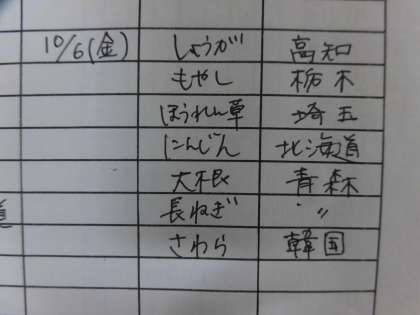 10/6(金) しょうが 高知
もやし 栃木
ほうれん草 埼玉
にんじん 北海道
大根 青森
長ねぎ 〃
さわら 韓国